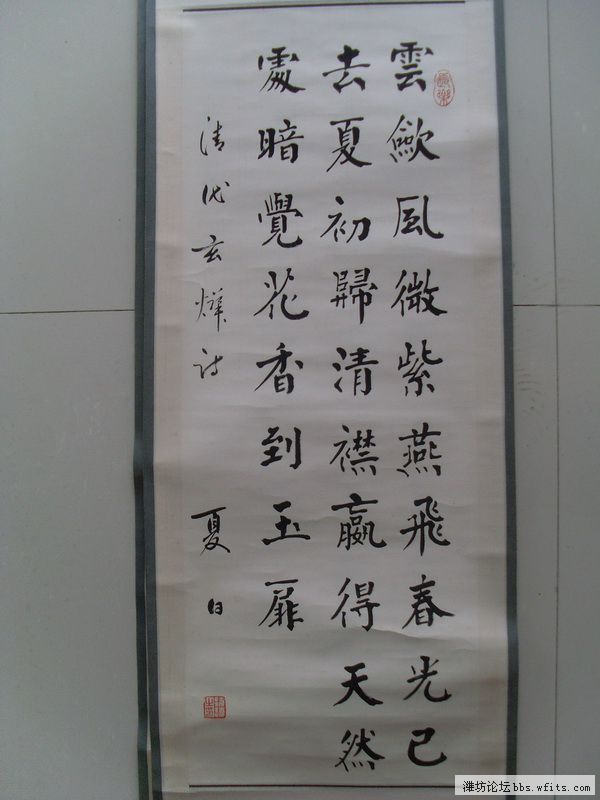 雲歛風微紫燕飛春光已
去夏初歸清襟贏得天然
處暗覺花香到玉扉
清代玄燁詩
夏日
潍坊论坛bbs.wfits.com